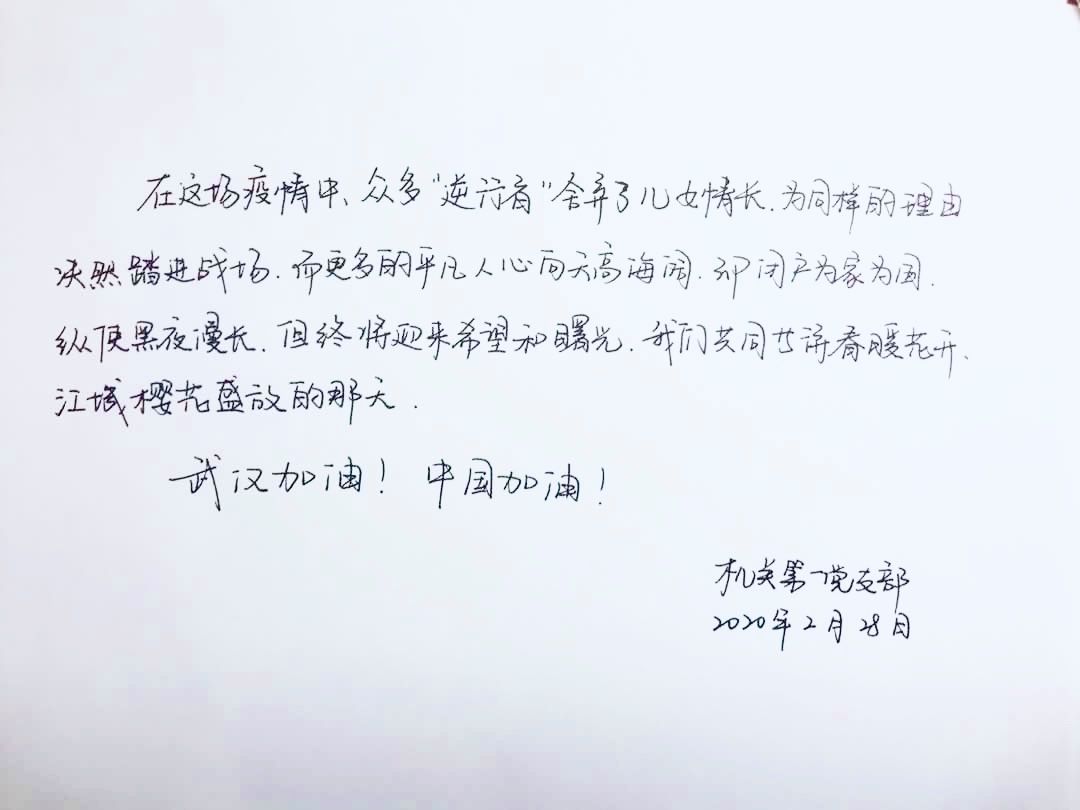 在这场疫情中、众多“逆行者”舍弃了儿女情长.为同样的理由
决然踏进战场.而更多的平凡人心向天高海阔.却闭户为家为国.
纵使黑夜漫长.但终将迎来希望和曙光.我们共同去听春暖花开、
江城樱花盛放的那天.
武汉加油！ 中国加油！
机关第一党支部
2020年2月28日